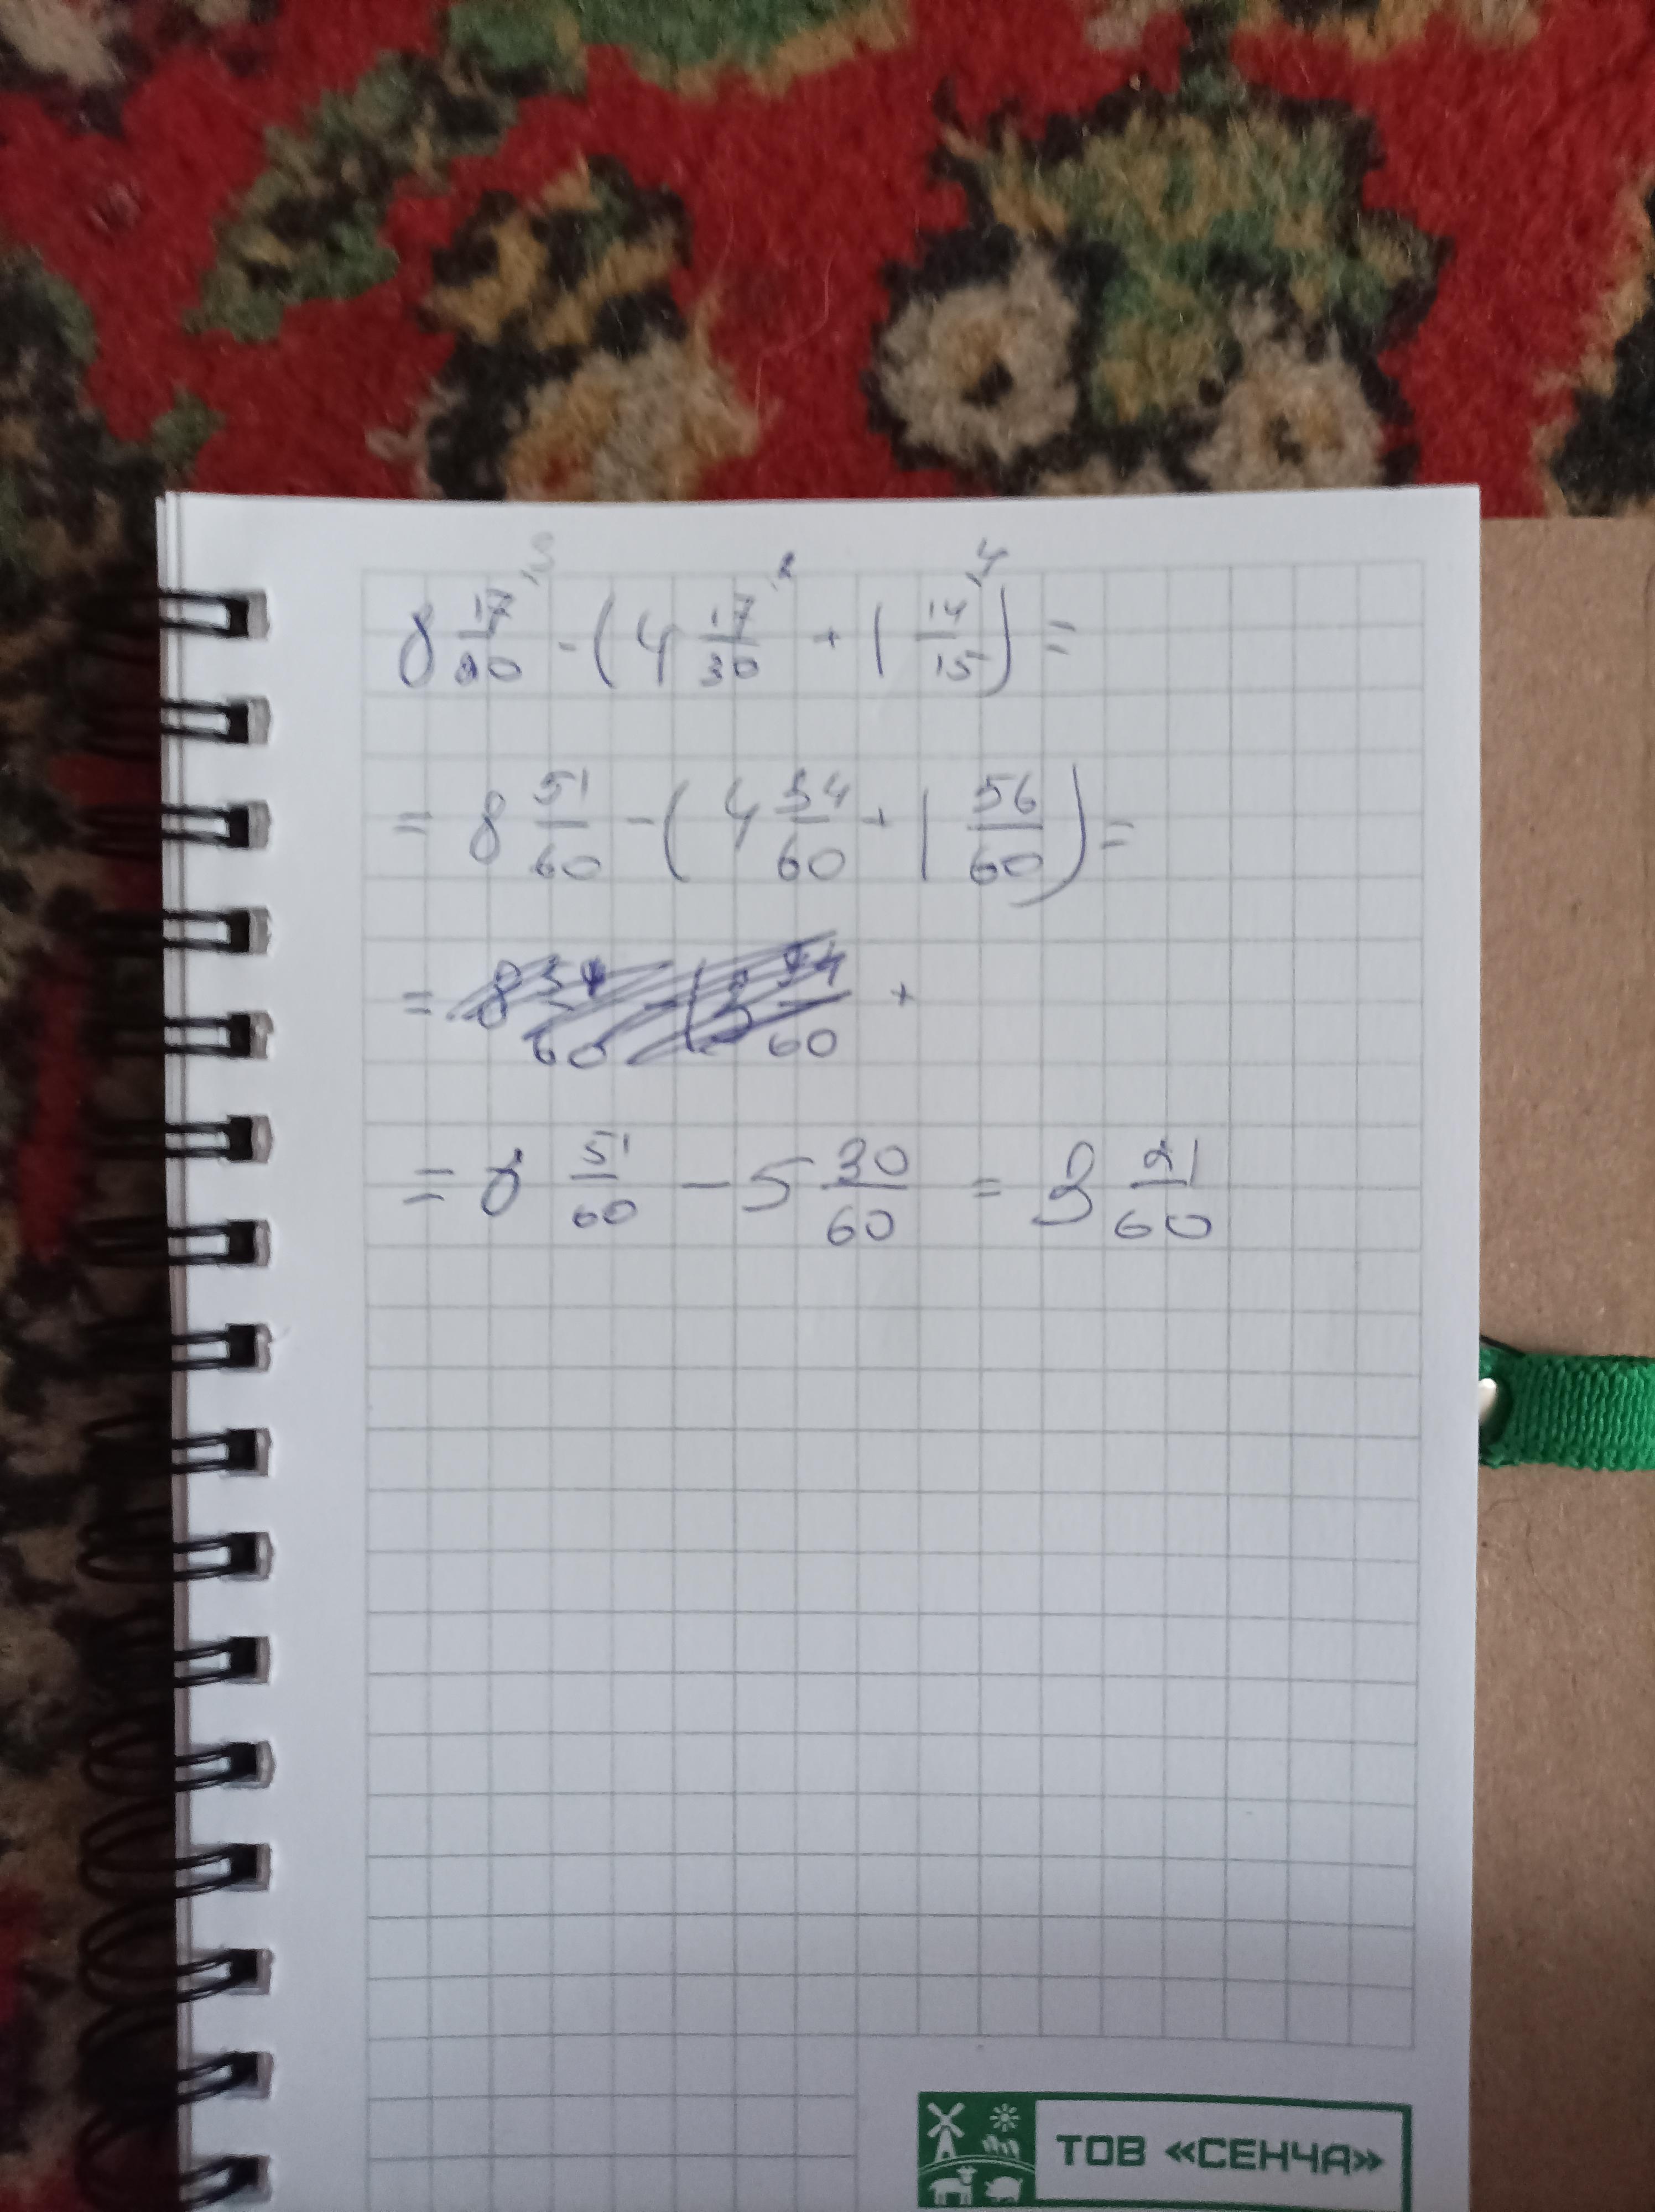 8 17/20 - (4 17/30 + 1 14/15) =
= 8 51/60 - (4 34/60 + 1 56/60) =
= +
= 8 51/60 - 5 30/60 = 3 21/60
ТОВ «СЕНЧА»